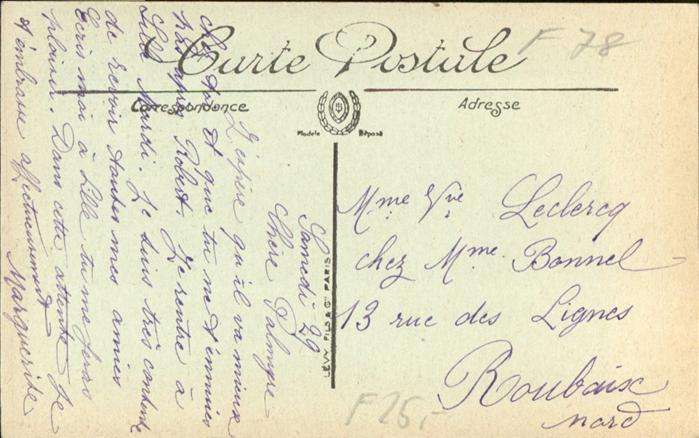 Carte Postale
F 78
Correspondance
Adresse
Modèle Déposé
LÉVY FILS & Cie PARIS
Samedi 29
Chère Palmyre
J'espère qu'il va mieux
chez toi et que tu ne t'ennuies
pas après Robert. Je rentre à
Lille Mardi. Je suis très contente
de revoir toutes mes amies
Ecris moi à Lille tu me feras
plaisir. Dans cette attente Je
t'embrasse affectueusement
Marguerite
Mme Vve Leclercq
chez Mme Bonnel
13 rue des Lignes
Roubaix
Nord
F 25,-